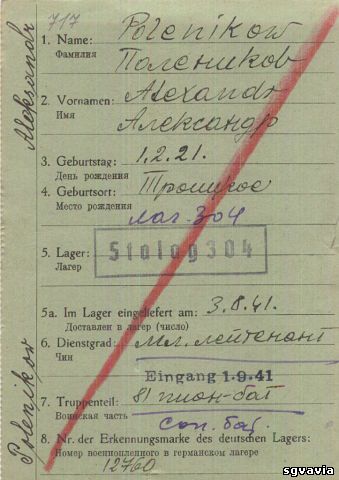 717
Aleksandr
Polenikow
1. Name: Polenikow
Фамилия Полеников
2. Vornamen: Alexandr
Имя Александр
3. Geburtstag: 1.2.21.
День рождения
4. Geburtsort: Троицкое
Место рождения
лаг. 304
5. Lager: Stalag 304
Лагерь
5a. Im Lager eingeliefert am: 3.8.41.
Доставлен в лагерь (число)
6. Dienstgrad: Мл. лейтенант
Чин
Eingang 1.9.41
7. Truppenteil: 81 пион-бат
Воинская часть
сап. бат.
8. Nr. der Erkennungsmarke des deutschen Lagers:
Номер военнопленного в германском лагере
12760
sgvavia